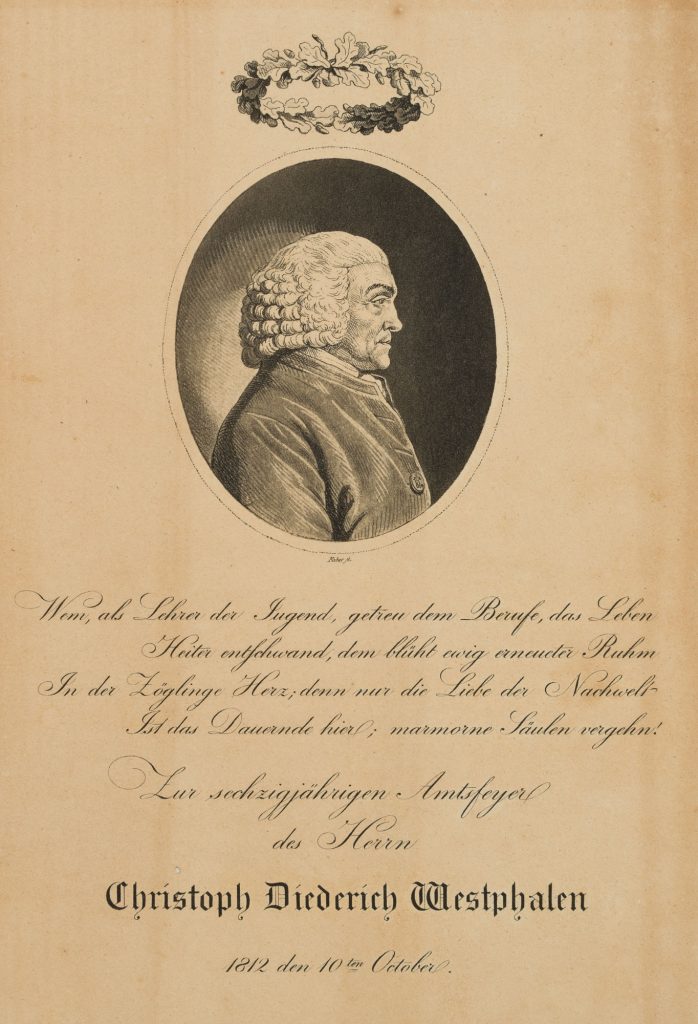 Wem, als Lehrer der Jugend, getreu dem Berufe, das Leben
Heiter entschwand, dem blüht ewig erneuter Ruhm
In der Zöglinge Herz; denn nur die Liebe der Nachwelt
Ist das Dauernde hier; marmorne Säulen vergehn!
Zur sechzigjährigen Amtsfeyer
des Herrn
Christoph Diederich Westphalen
1812 den 10ten October.